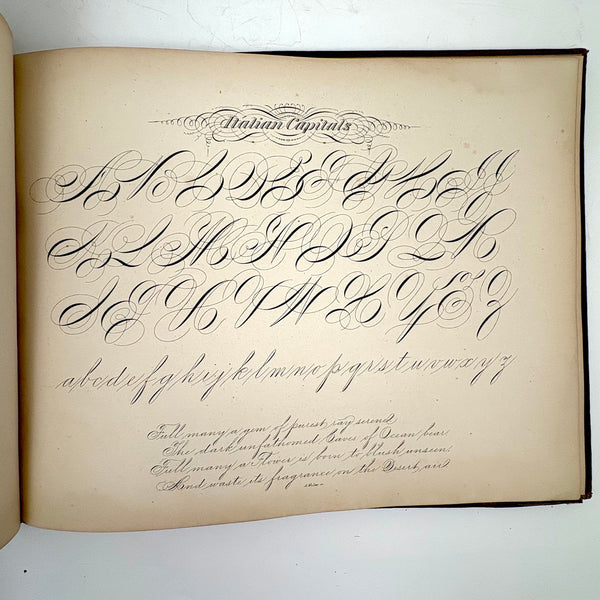 Italian Capitals
A B C D E F G H I J
K L M N O P Q R
S T U V W X Y Z
abcdefghijklmnopqrstuvwxyz
Full many a gem of purest ray serene
The dark unfathomed Caves of Ocean bear
Full many a Flower is born to blush unseen
And waste its fragrance on the Desert air